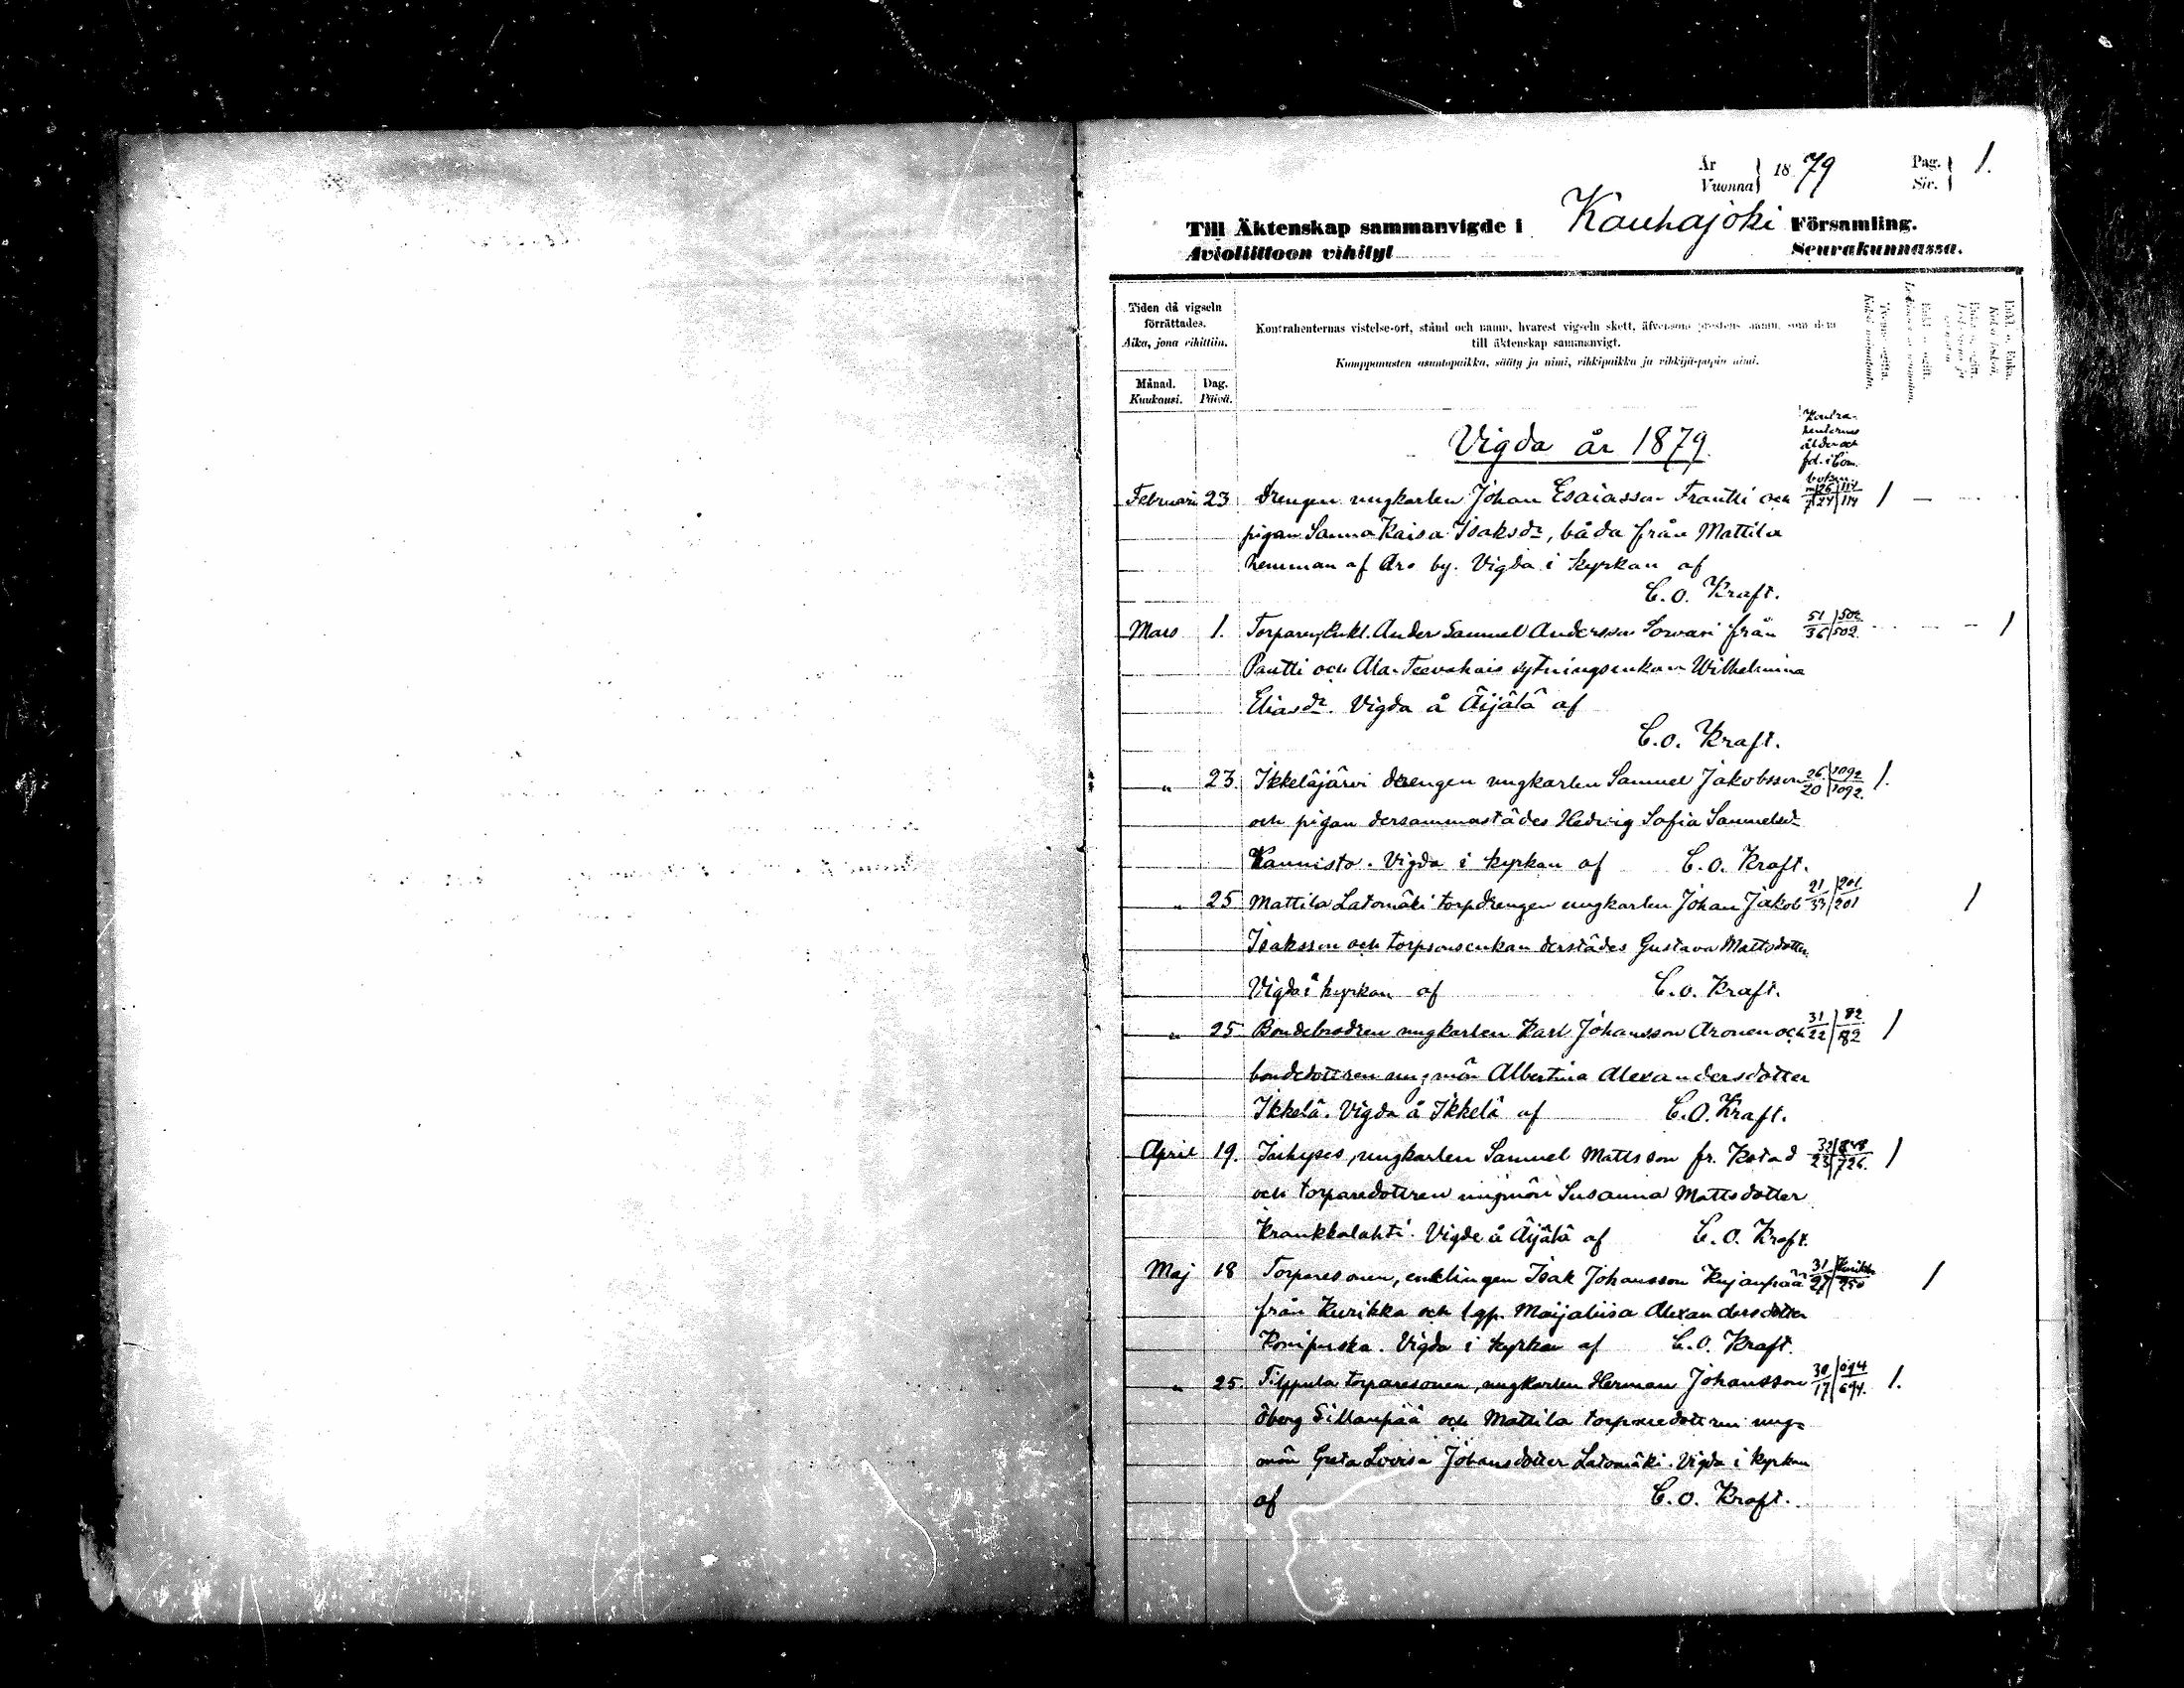 År 1879 Pag. 1.
Vuonna Siv.
Till Äktenskap sammanvigde i Kauhajoki Församling.
Avioliittoon vihityt Seurakunnassa.
Tiden då vigseln förrättades.
Aika, jona vihittiin.
Månad. Dag.
Kuukausi. Päivä.
Kontrahenternas vistelse-ort, stånd och namn, hvarest vigseln skett, äfvensom prestens namn, som dem
till äktenskap sammanvigt.
Kumppanusten asuntopaikka, sääty ja nimi, vihkipaikka ja vihkijä-papin nimi.
Kontra-
henternas
ålder och
fol. i Com.
boken
Vigda år 1879.
Februari 23 Drengen ungkarlen Johan Esaiasson Frantti och 26/24 114/114 1
pigan Sanna Kaisa Isaksdr, båda från Mattila
hemman af Aro by. Vigda i kyrkan af
C. O. Kraft.
Mars 1. Torparen, Enkl. Ander Samuel Andersson Sorvari från 51/36 502/502 1
Pantti och Ala-Teevahais sytningsenkan Wilhelmina
Eliasdr. Vigda å Äijälä af
C. O. Kraft.
" 23. Ikkeläjärvi drengen ungkarlen Samuel Jakobsson 26/20 1092/1092. 1.
och pigan dersammastädes Hedvig Sofia Samuelsdr
Kannisto. Vigda i kyrkan af C. O. Kraft.
" 25 Mattila Latomäki torpdrengen ungkarlen Johan Jakob 21/33 201/201 1
Isaksson och torpsonsenkan derstädes Gustava Mattsdotter
Vigda i kyrkan af C. O. Kraft.
" 25 Bondebrodren ungkarlen Karl Johansson Aronen och 31/22 82/82 1
bondedottren ungmön Albertina Alexandersdotter
Ikkelä. Vigda å Ikkelä af C. O. Kraft.
April 19. ungkarlen Samuel Mattsson fr. 32/23 848/726. 1
och torparedottren ungmön Susanna Mattsdotter
Krankkalahti. Vigde å Äijälä af C. O. Kraft.
Maj 18 Torparesonen, enklingen Isak Johansson Kujanpää 31/27 Kurikka/250 1
från Kurikka och lgp. Maijaliisa Alexandersdotter
Konipuska. Vigda i kyrkan af C. O. Kraft.
" 25. Filppula torparesonen, ungkarlen Herman Johansson 30/17 694/694. 1.
Öberg Sillanpää och Mattila torparedottren ung-
mön Greta Lovisa Johansdotter Latomäki. Vigda i kyrkan
af C. O. Kraft.